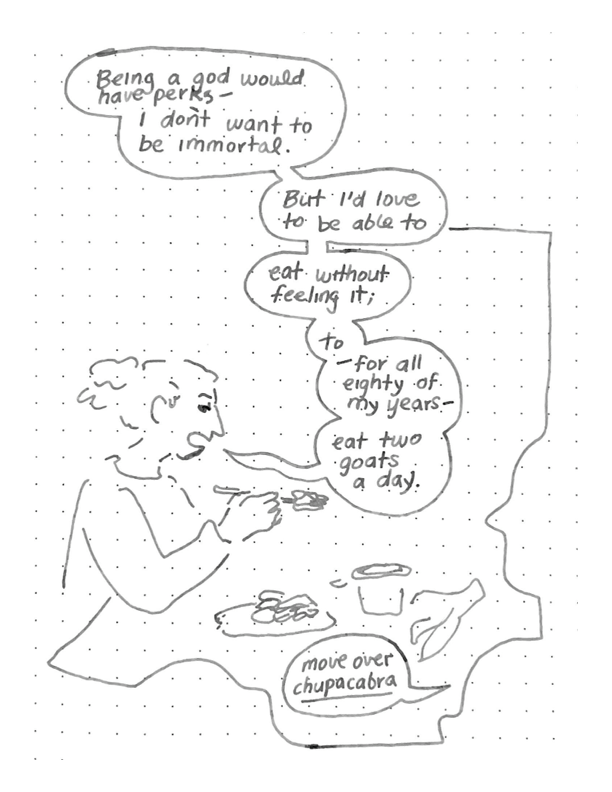 Being a god would
have perks—
i don't want to
be immortal.
But I'd love
to be able to
eat without
feeling it;
to
—for all
eighty of
my years—
eat two
goats
a day.
move over
chupacabra